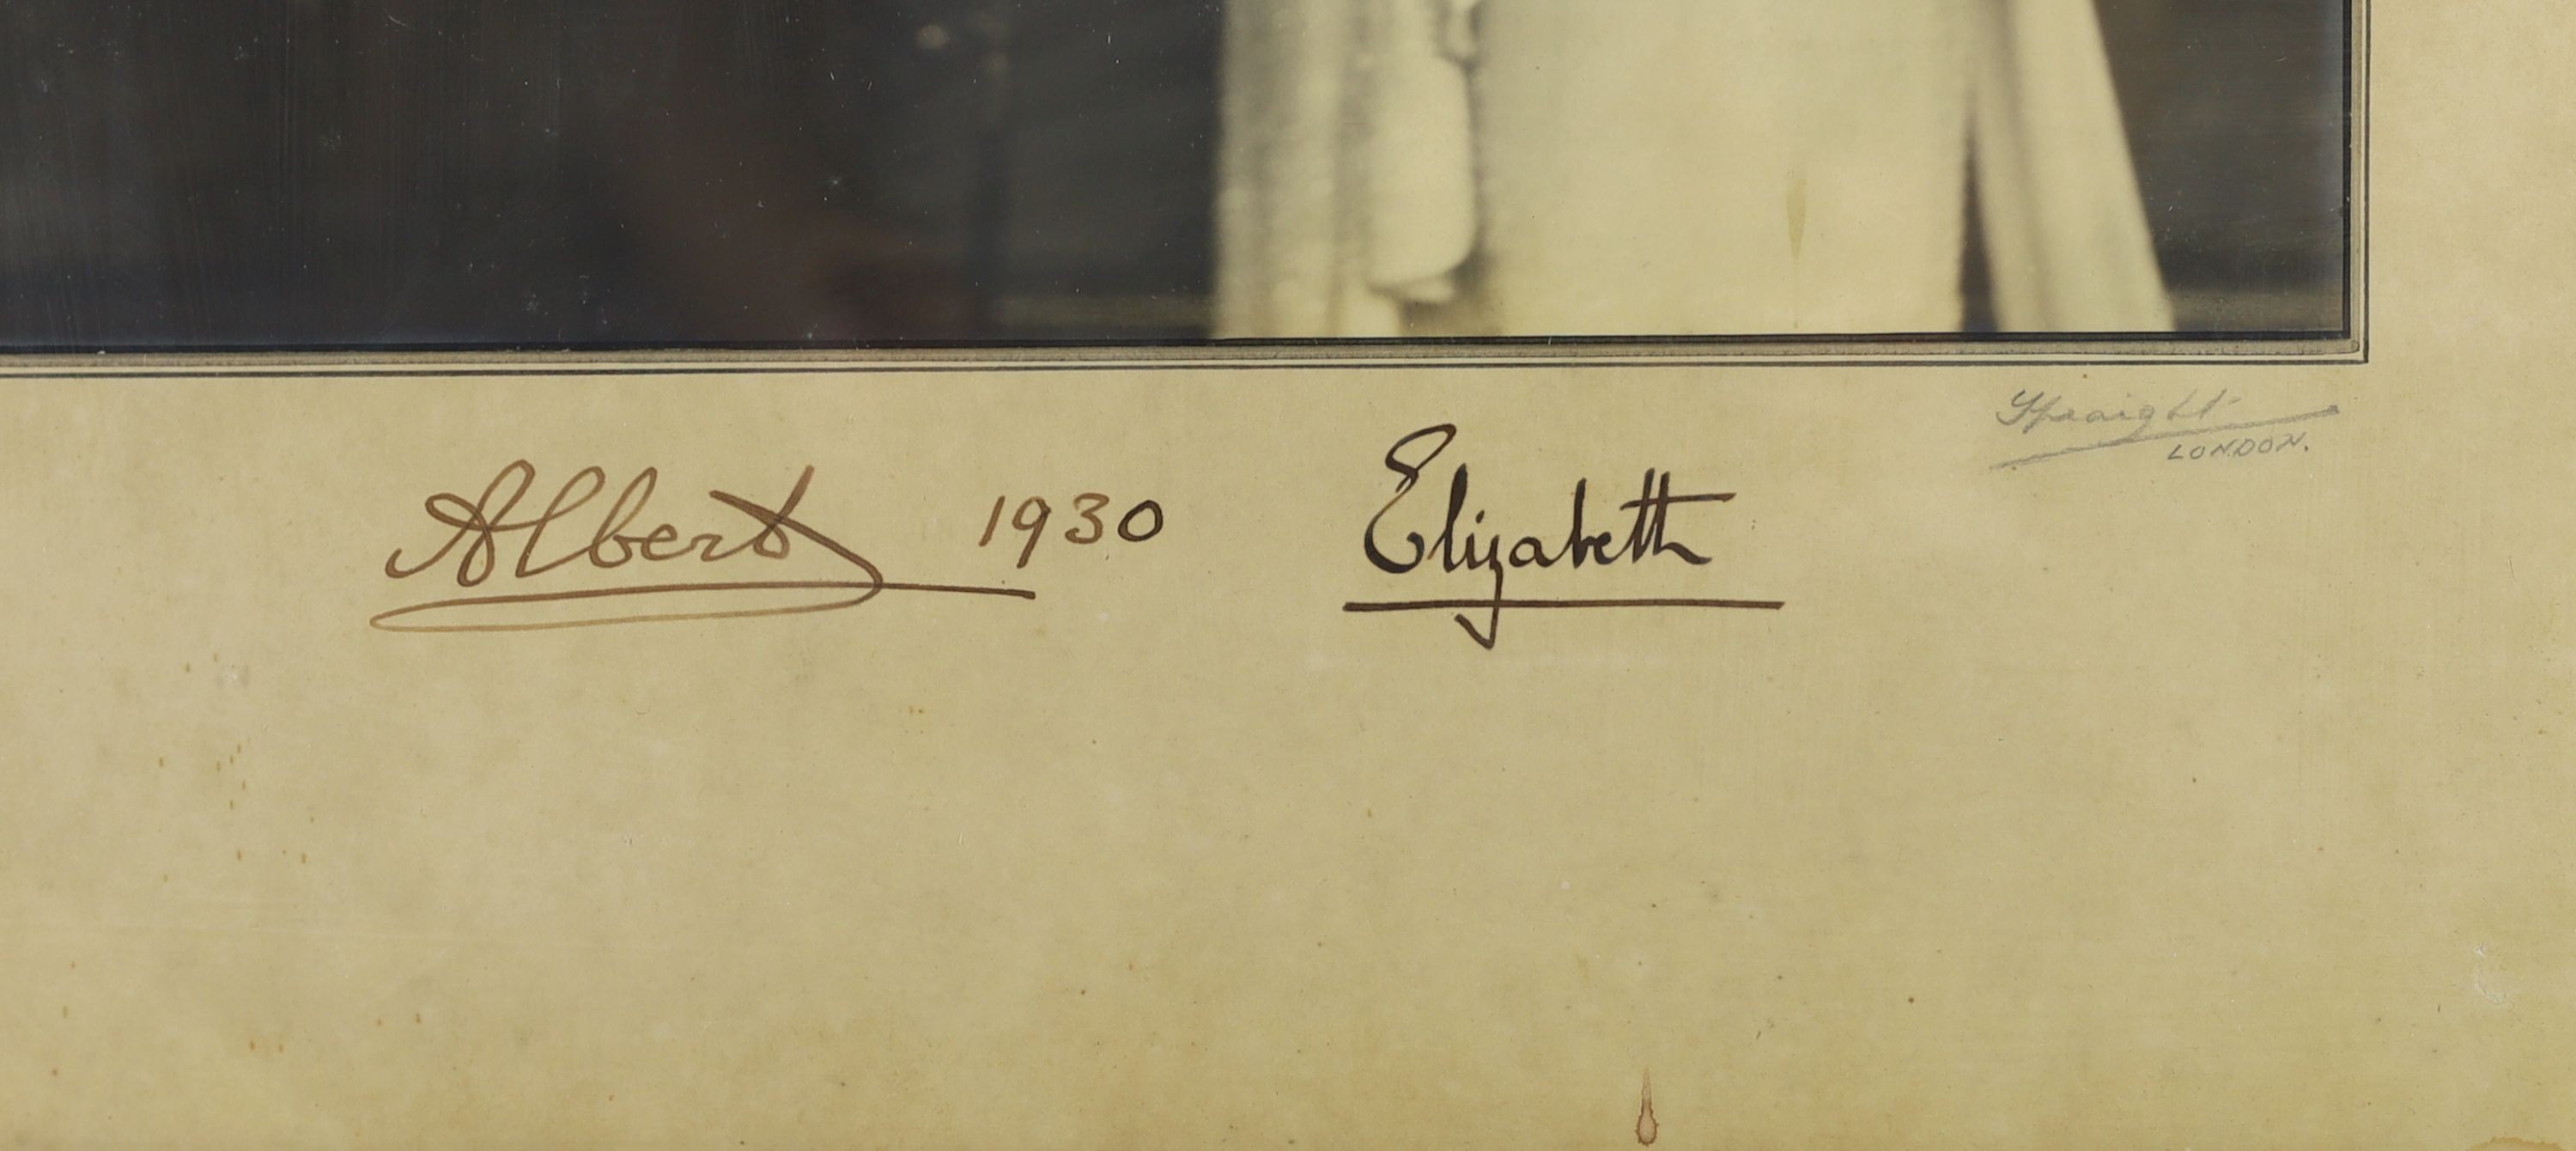 Speaight
LONDON.
Albert 1930 Elizabeth